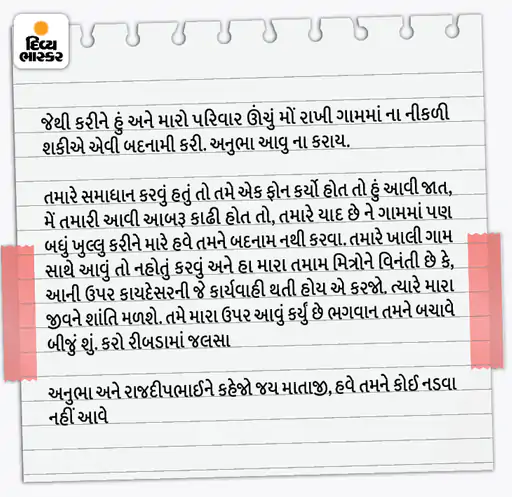 દિવ્ય
ભાસ્કર
જેથી કરીને હું અને મારો પરિવાર ઊંચું મોં રાખી ગામમાં ના નીકળી
શકીએ એવી બદનામી કરી. અનુભા આવુ ના કરાય.
તમારે સમાધાન કરવું હતું તો તમે એક ફોન કર્યો હોત તો હું આવી જાત,
મેં તમારી આવી આબરૂ કાઢી હોત તો, તમારે યાદ છે ને ગામમાં પણ
બધું ખુલ્લુ કરીને મારે હવે તમને બદનામ નથી કરવા. તમારે ખાલી ગામ
સાથે આવું તો નહોતું કરવું અને હા મારા તમામ મિત્રોને વિનંતી છે કે,
આની ઉપર કાયદેસરની જે કાર્યવાહી થતી હોય એ કરજો. ત્યારે મારા
જીવને શાંતિ મળશે. તમે મારા ઉપર આવું કર્યું છે ભગવાન તમને બચાવે
બીજું શું. કરો રીબડામાં જલસા
અનુભા અને રાજદીપભાઈને કહેજો જય માતાજી, હવે તમને કોઈ નડવા
નહીં આવે